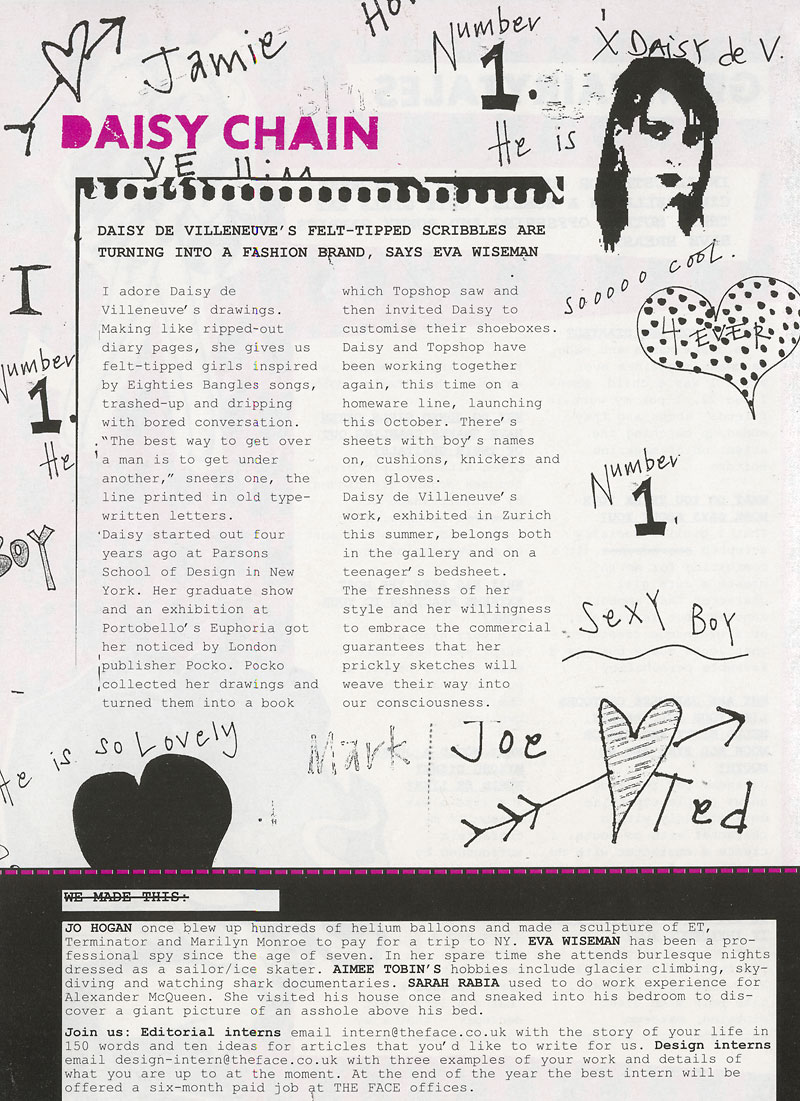 Jamie
Number
1.
He is
X DAISY de V.
DAISY CHAIN
DAISY DE VILLENEUVE'S FELT-TIPPED SCRIBBLES ARE
TURNING INTO A FASHION BRAND, SAYS EVA WISEMAN
I adore Daisy de
Villeneuve's drawings.
Making like ripped-out
diary pages, she gives us
felt-tipped girls inspired
by Eighties Bangles songs,
trashed-up and dripping
with bored conversation.
"The best way to get over
a man is to get under
another," sneers one, the
line printed in old type-
written letters.
Daisy started out four
years ago at Parsons
School of Design in New
York. Her graduate show
and an exhibition at
Portobello's Euphoria got
her noticed by London
publisher Pocko. Pocko
collected her drawings and
turned them into a book
which Topshop saw and
then invited Daisy to
customise their shoeboxes.
Daisy and Topshop have
been working together
again, this time on a
homeware line, launching
this October. There's
sheets with boy's names
on, cushions, knickers and
oven gloves.
Daisy de Villeneuve's
work, exhibited in Zurich
this summer, belongs both
in the gallery and on a
teenager's bedsheet.
The freshness of her
style and her willingness
to embrace the commercial
guarantees that her
prickly sketches will
weave their way into
our consciousness.
I
Number
1.
He
BOY
sooooo cool.
4 EVER
Number
1.
SEXY BOY
He is so Lovely
Mark
Joe
Ted
WE MADE THIS:
JO HOGAN once blew up hundreds of helium balloons and made a sculpture of ET,
Terminator and Marilyn Monroe to pay for a trip to NY. EVA WISEMAN has been a pro-
fessional spy since the age of seven. In her spare time she attends burlesque nights
dressed as a sailor/ice skater. AIMEE TOBIN'S hobbies include glacier climbing, sky-
diving and watching shark documentaries. SARAH RABIA used to do work experience for
Alexander McQueen. She visited his house once and sneaked into his bedroom to dis-
cover a giant picture of an asshole above his bed.
Join us: Editorial interns email intern@theface.co.uk with the story of your life in
150 words and ten ideas for articles that you'd like to write for us. Design interns
email design-intern@theface.co.uk with three examples of your work and details of
what you are up to at the moment. At the end of the year the best intern will be
offered a six-month paid job at THE FACE offices.